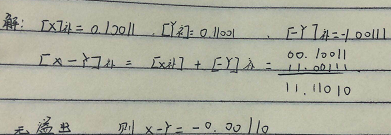 解: [X]补=0.10011 , [Y]补=0.11001 , [-Y]补=1.00111
[X-Y]补 = [X补] + [-Y]补 = 00.10011
11.00111
11.11010
无溢出 则 X-Y=-0.00110